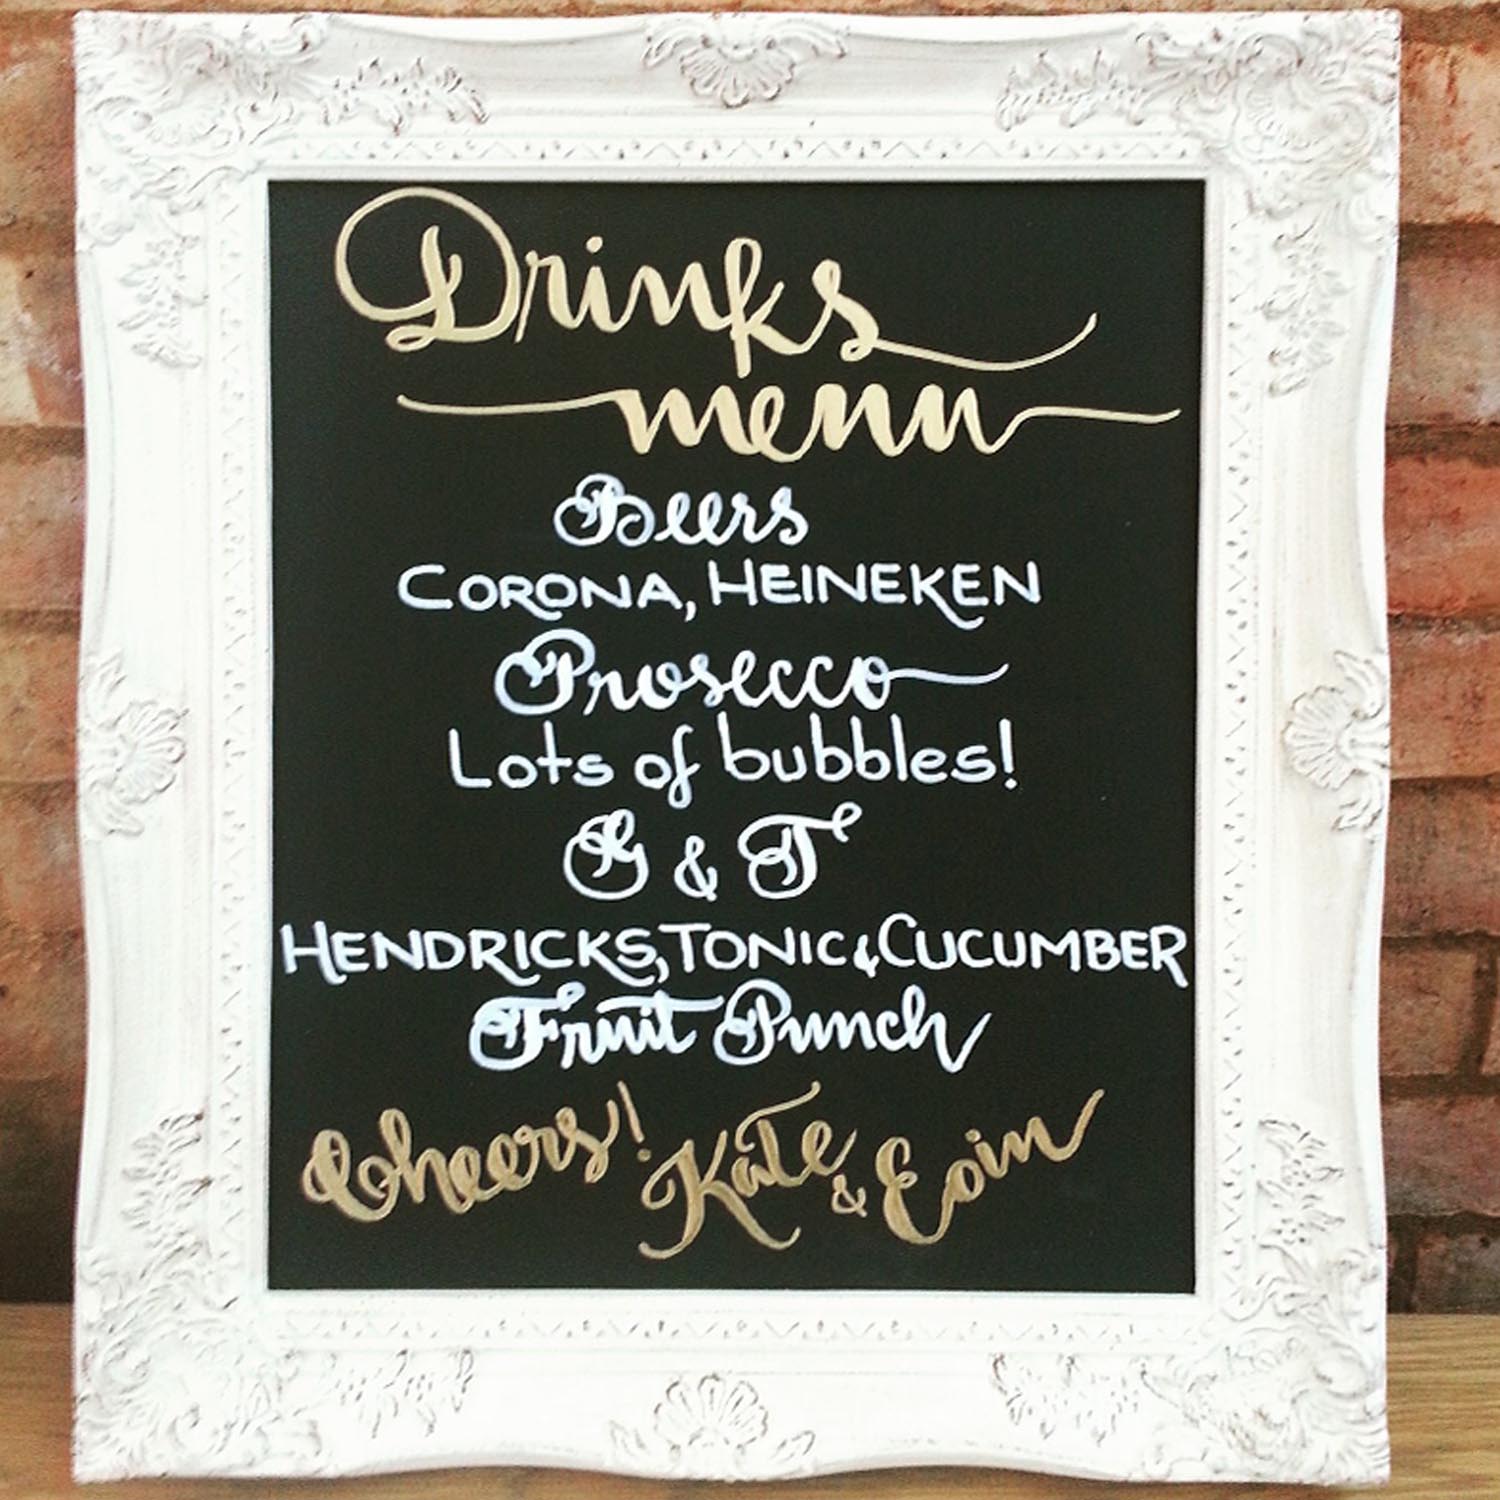 Drinks
menu
Beers
CORONA, HEINEKEN
Prosecco
Lots of bubbles!
G & T
HENDRICKS, TONIC & CUCUMBER
Fruit Punch
Cheers! Kate & Eoin